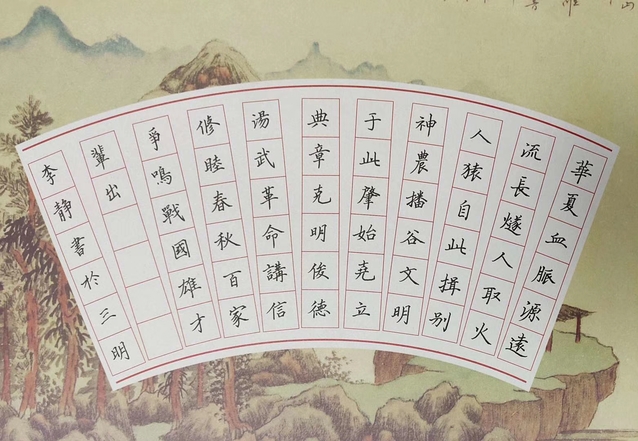 華夏血脈源遠
流長燧人取火
人猿自此揖别
神農播谷文明
于此肇始堯立
典章克明俊德
湯武革命講信
修睦春秋百家
爭鳴戰國雄才
輩出
李靜書於三明